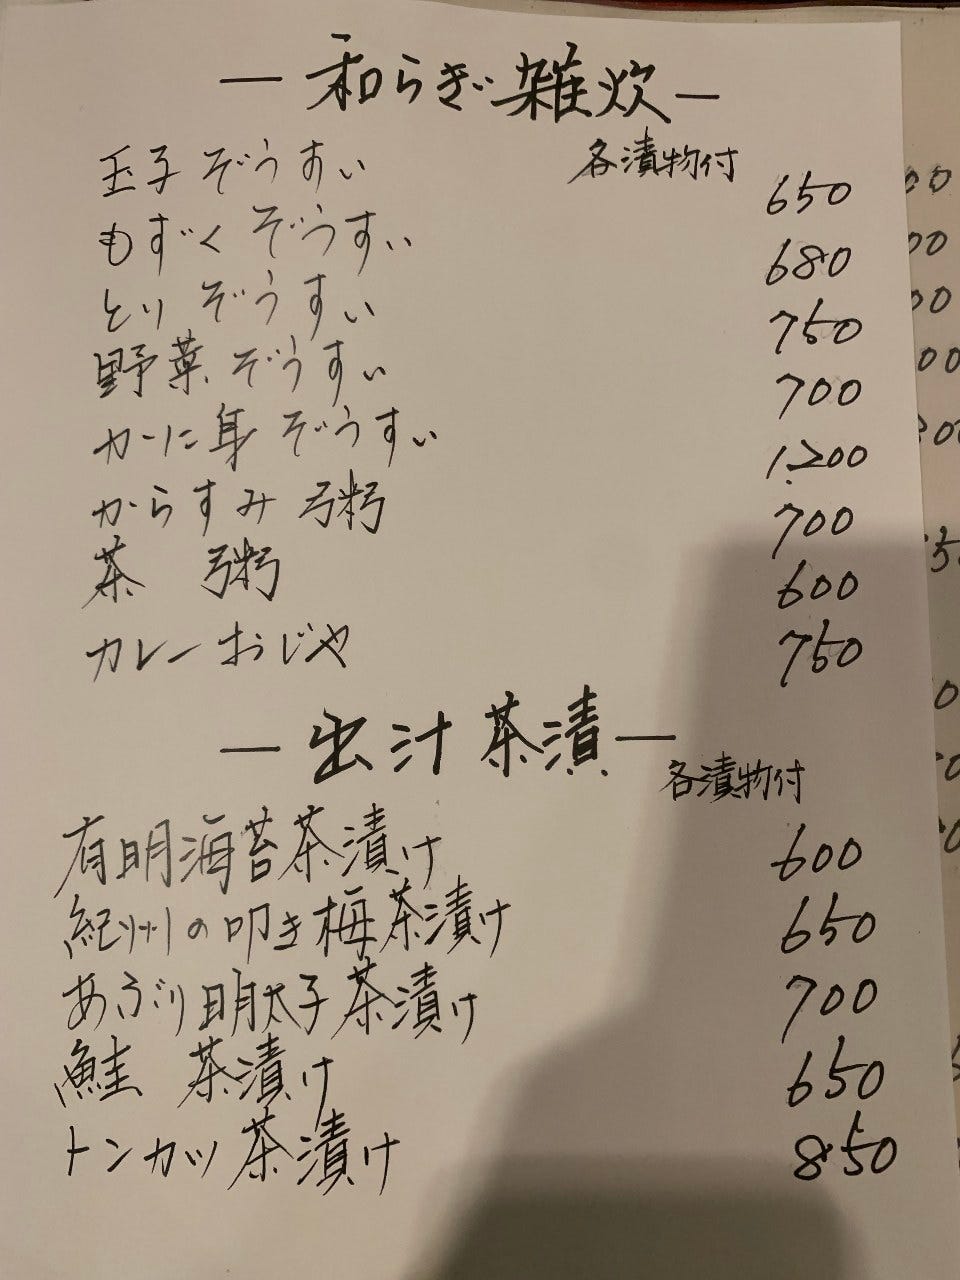 ー和らぎ雑炊ー
各漬物付
玉子ぞうすい 650
もずくぞうすい 680
とりぞうすい 750
野菜ぞうすい 700
かに身ぞうすい 1.200
からすみ粥 700
茶粥 600
カレーおじや 750
ー出汁茶漬ー
各漬物付
有明海苔茶漬け 600
紀州の叩き梅茶漬け 650
あぶり明太子茶漬け 700
鮭 茶漬け 650
トンカツ茶漬け 850